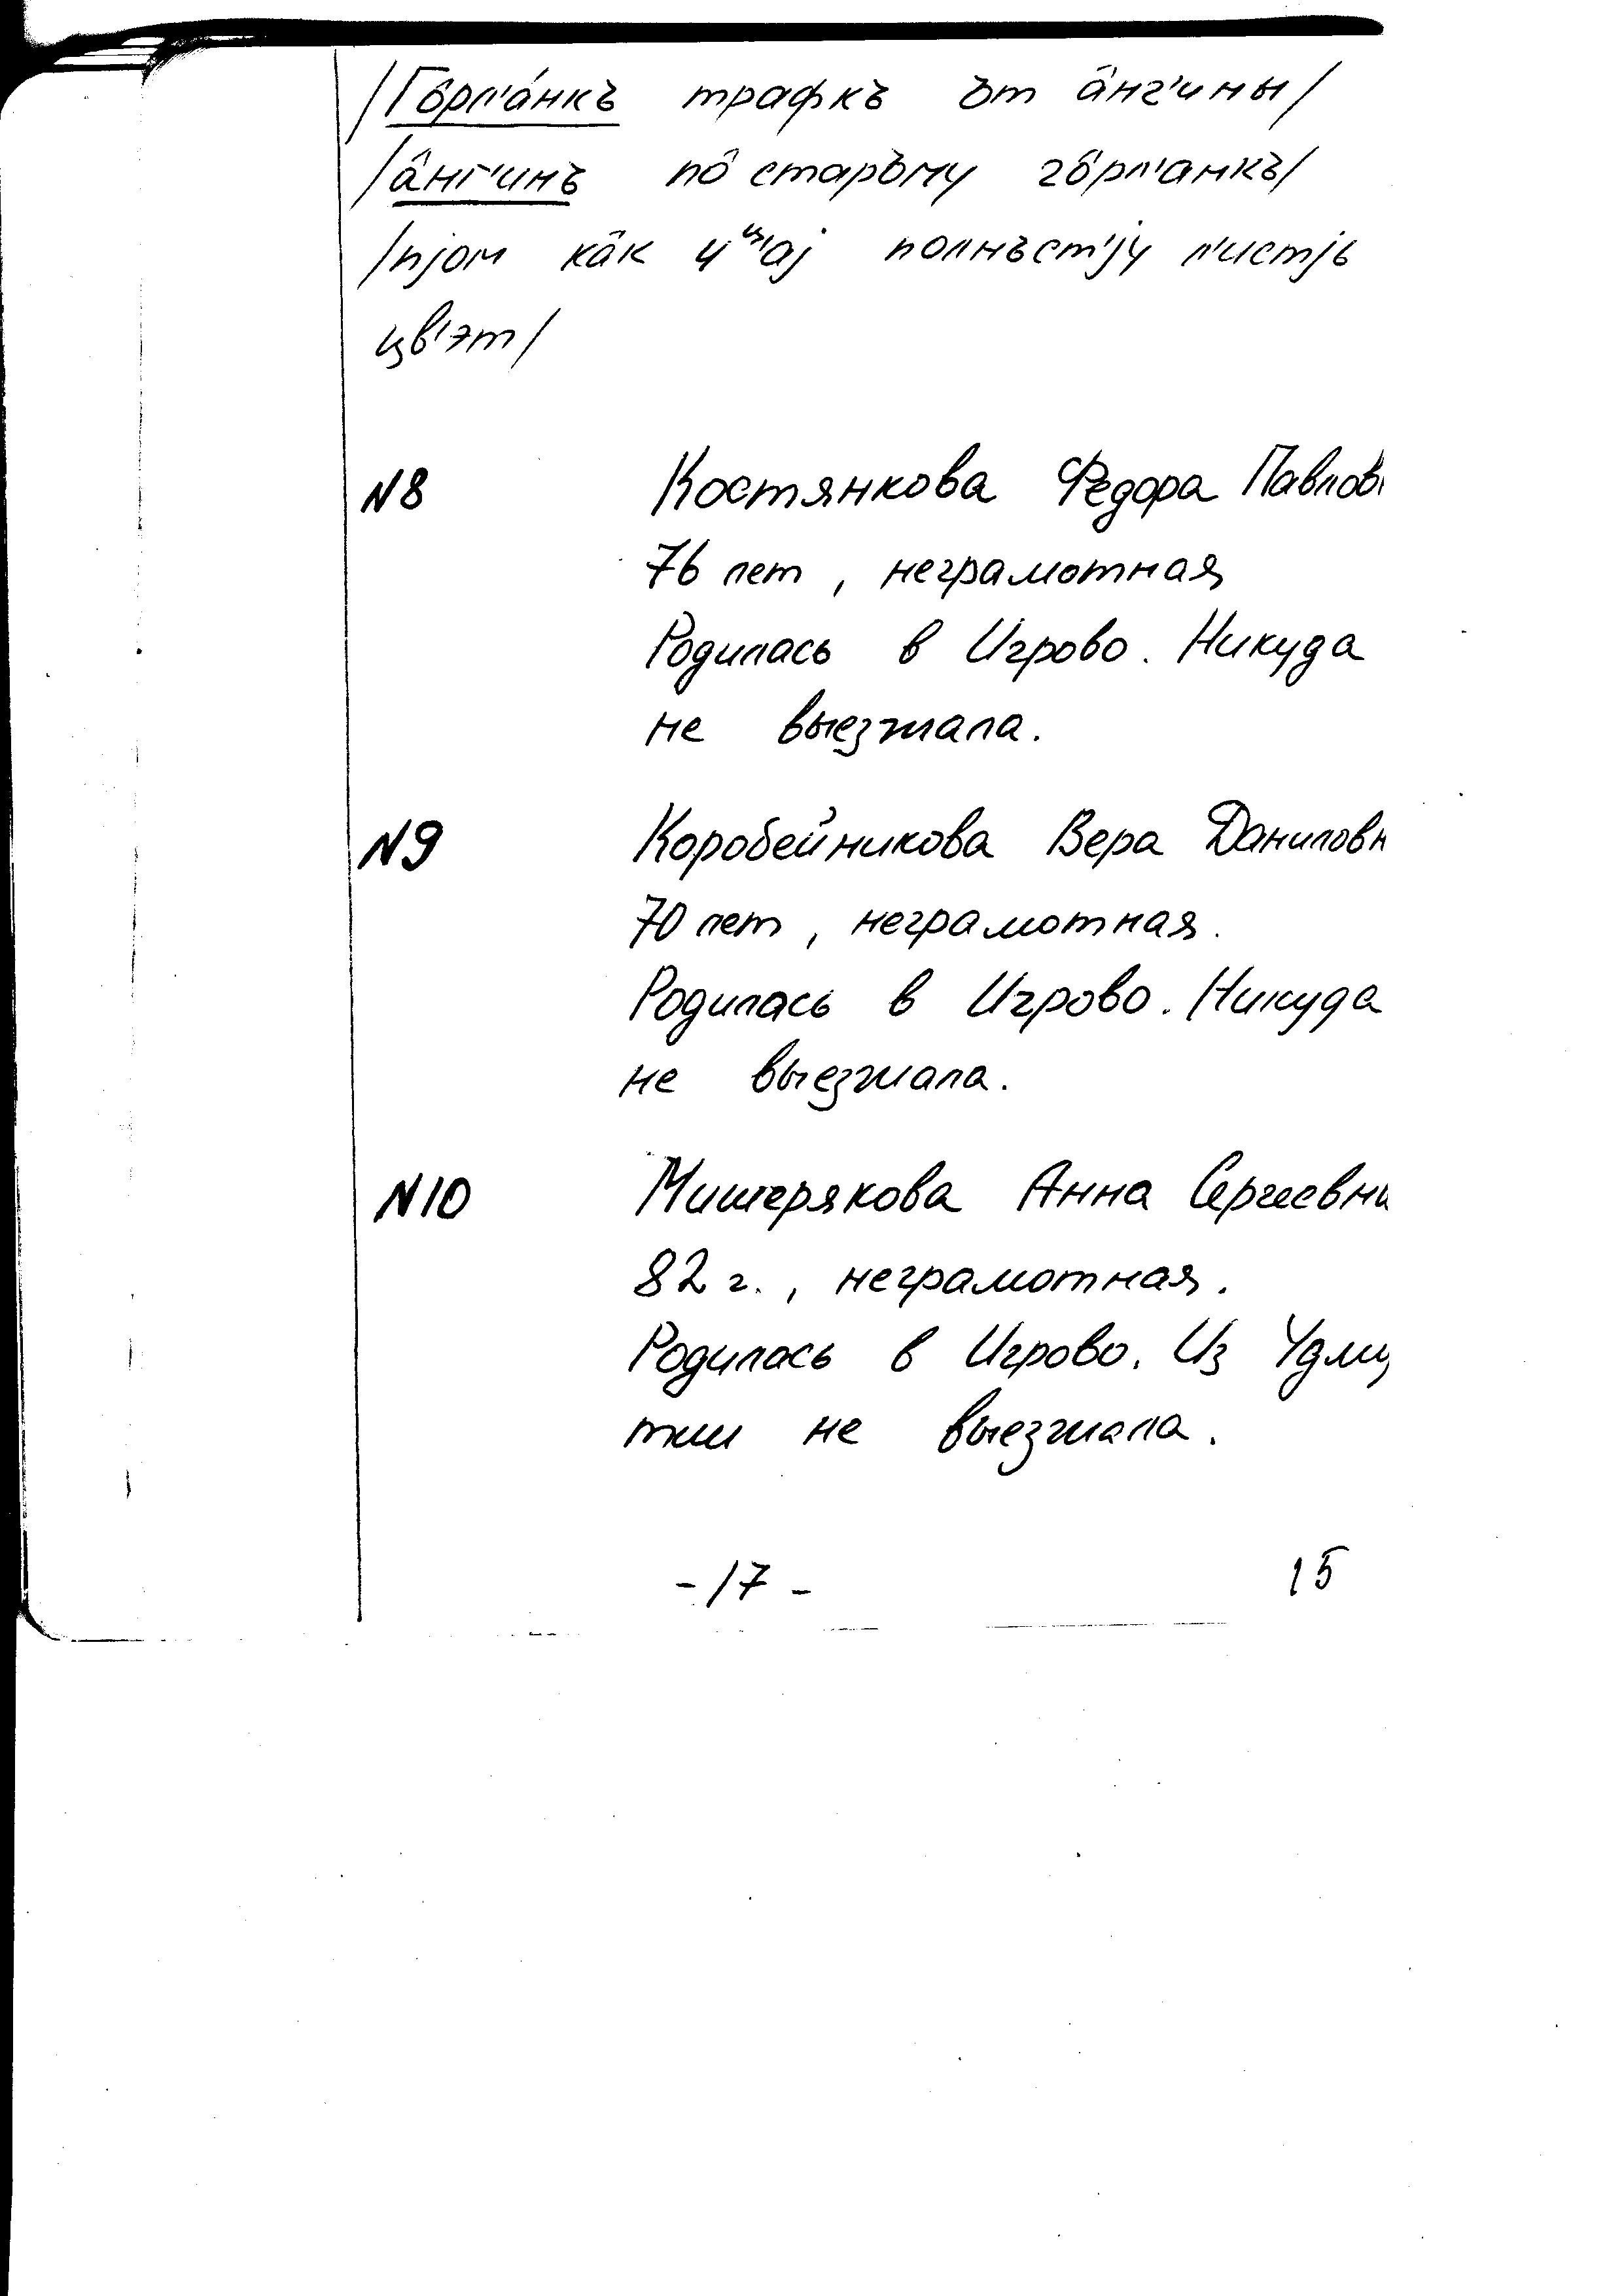 /Го̂рл'а́нкъ трафкъ ът а̂нг'ины/
/а̂нг'инъ по̂ старъму го̂рл'анкъ/
/пjом ка̂к ч ц'аj полнъст'jу л'истjь
цв'эт/
N8 Костянкова Федора Павлов
76 лет, неграмотная
Родилась в Игрово. Никуда
не выезжала.
N9 Коробейникова Вера Даниловн
70 лет, неграмотная.
Родилась в Игрово. Никуда
не выезжала.
N10 Мишерякова Анна Сергеевн
82 г., неграмотная.
Родилась в Игрово. Из Удму
тии не выезжала.
- 17 - 15